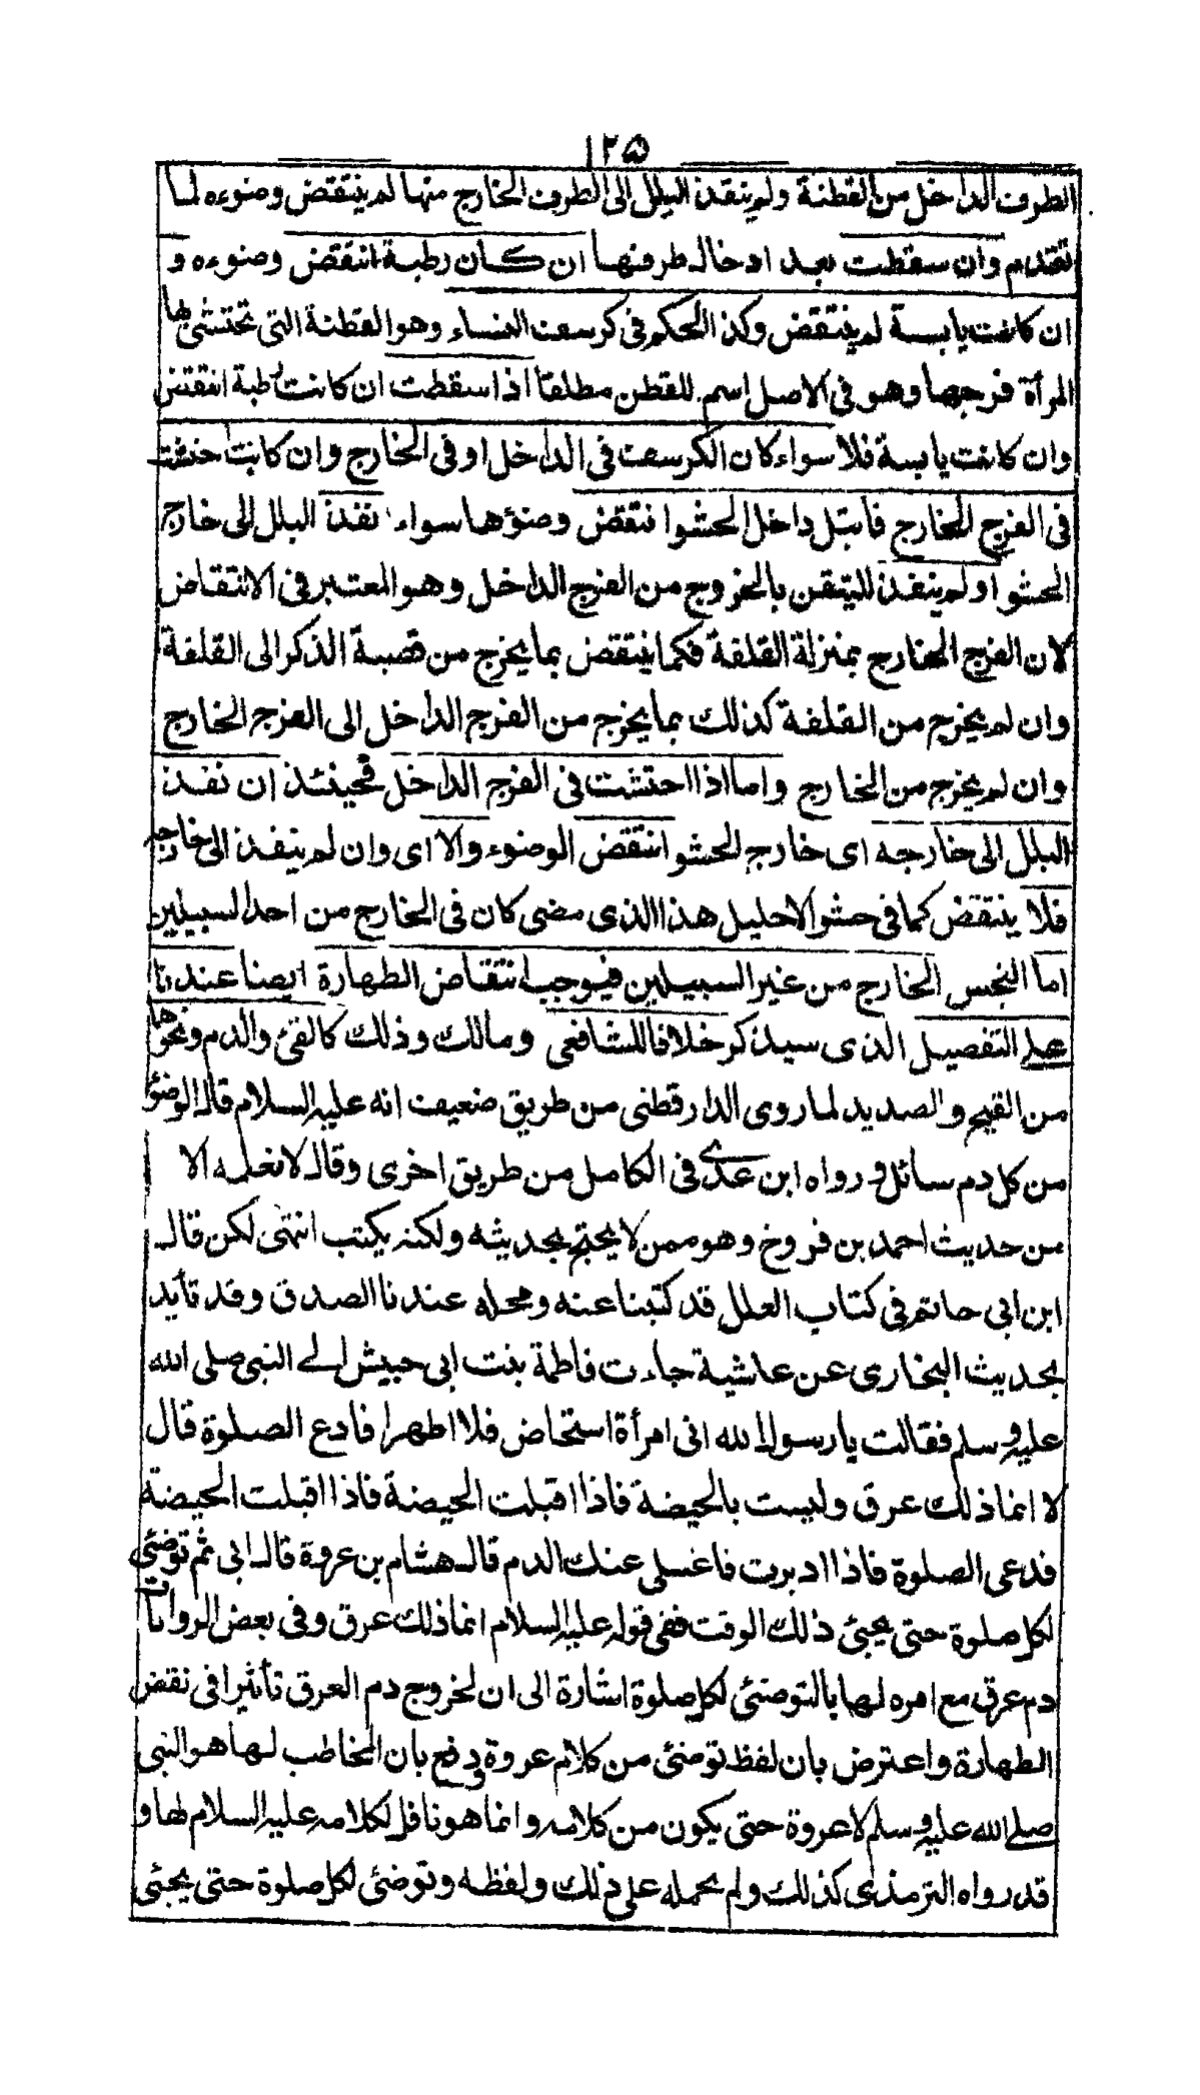 ١٢٥
الطرف الداخل من القطنة ولم ينفذ البلل الى الطرف الخارج منها لم ينتقض وضوءه لما
تقدم وان سقطت بعد ادخال طرفها ان كان رطبة انتقض وضوءه و
ان كانت يابسة لم ينتقض وكذا الحكم فى كرسف النساء وهو القطنة التى تحتشى بها
المرأة فرجها وهو فى الاصل اسم للقطن مطلقا اذا سقطت ان كانت رطبة انتقض
وان كانت يابسة فلا سواء كان الكرسف فى الداخل او فى الخارج وان كانت احتشت
فى الفرج الخارج فابتل داخل الحشو انتقض وضوؤها سواء نفذ البلل الى خارج
الحشو او لم ينفذ للتيقن بالخروج من الفرج الداخل وهو المعتبر فى الانتقاض
لان الفرج الخارج بمنزلة القلفة فكما ينتقض بما يخرج من قصبة الذكر الى القلفة
وان لم يخرج من القلفة كذلك بما يخرج من الفرج الداخل الى الفرج الخارج
وان لم يخرج من الخارج واما اذا احتشت فى الفرج الداخل فحينئذ ان نفذ
البلل الى خارجه اى خارج الحشو انتقض الوضوء والا اى وان لم ينفذ الى خارجه
فلا ينتقض كما فى حشو الاحليل هذا الذى مضى كان فى الخارج من احد السبيلين
اما النجس الخارج من غير السبيلين فيوجب انتقاض الطهارة ايضا عندنا
على التفصيل الذى سيذكر خلافا للشافعى ومالك وذلك كالقئ والدم ونحوها
من القيح والصديد لما روى الدارقطنى من طريق ضعيف انه عليه السلام قال الوضوء
من كل دم سائل ورواه ابن عدى فى الكامل من طريق اخرى وقال لا نعلمه الا
من حديث احمد بن فروخ وهو ممن لا يحتج بحديثه ولكنه يكتب انتهى لكن قال
ابن ابى حاتم فى كتاب العلل قد كتبنا عنه ومحله عندنا الصدق وقد تأيد
بحديث البخارى عن عائشية جاءت فاطمة بنت ابى حبيش الى النبى صلى الله
عليه وسلم فقالت يا رسول الله انى امرأة استحاض فلا اطهر افادع الصلوة قال
لا انما ذلك عرق وليست بالحيضة فاذا اقبلت الحيضة فاذا اقبلت الحيضة
فدعى الصلوة فاذا ادبرت فاغسلى عنك الدم قال هشام بن عروة قال ابى ثم توضئى
لكل صلوة حتى يجئ ذلك الوقت ففى قوله عليه السلام انما ذلك عرق وفى بعض الروايات
دم عرق مع امره لها بالتوضئى لكل صلوة اشارة الى ان لخروج دم العرق تأثيرا فى نقض
الطهارة واعترض بان لفظ توضئى من كلام عروة ودفع بان المخاطب لها هو النبى
صلى الله عليه وسلم لا عروة حتى يكون من كلامه وانما هو ناقل لكلامه عليه السلام لها و
قد رواه الترمذى كذلك ولم يحمله على ذلك ولفظه وتوضئى لكل صلوة حتى يجئى